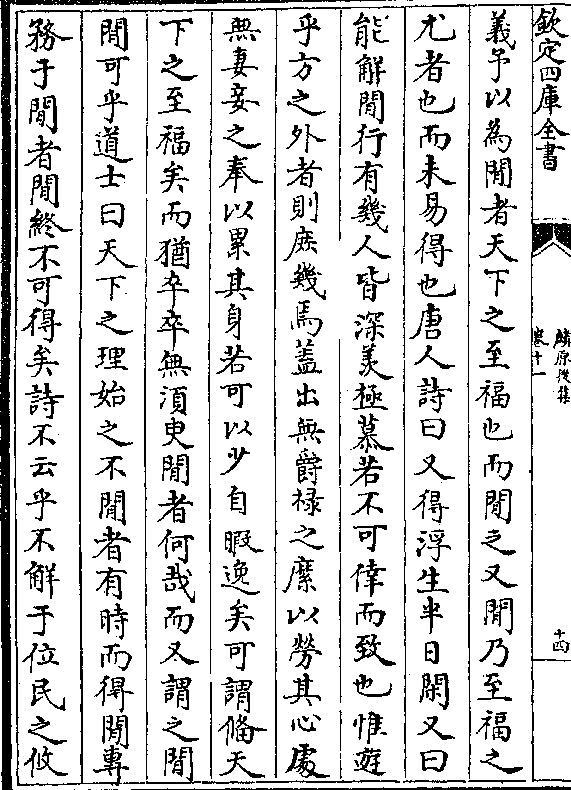 欽定四庫全書
麟原後集
卷十一
十四
義予以為閒者天下之至福也而閒之又閒乃至福之
尤者也而未易得也唐人詩曰又得浮生半日閑又曰
能解閒行有幾人皆深羡極慕若不可倖而致也惟遊
乎方之外者則庶幾焉蓋出無爵祿之縻以勞其心處
無妻妾之奉以累其身若可以少自暇逸矣可謂偹天
下之至福矣而猶卒卒無湏臾閒者何哉而又謂之閒
閒可乎道士曰天下之理始之不閒者有時而得閒專
務于閒者閒終不可得矣詩不云乎不解于位民之攸